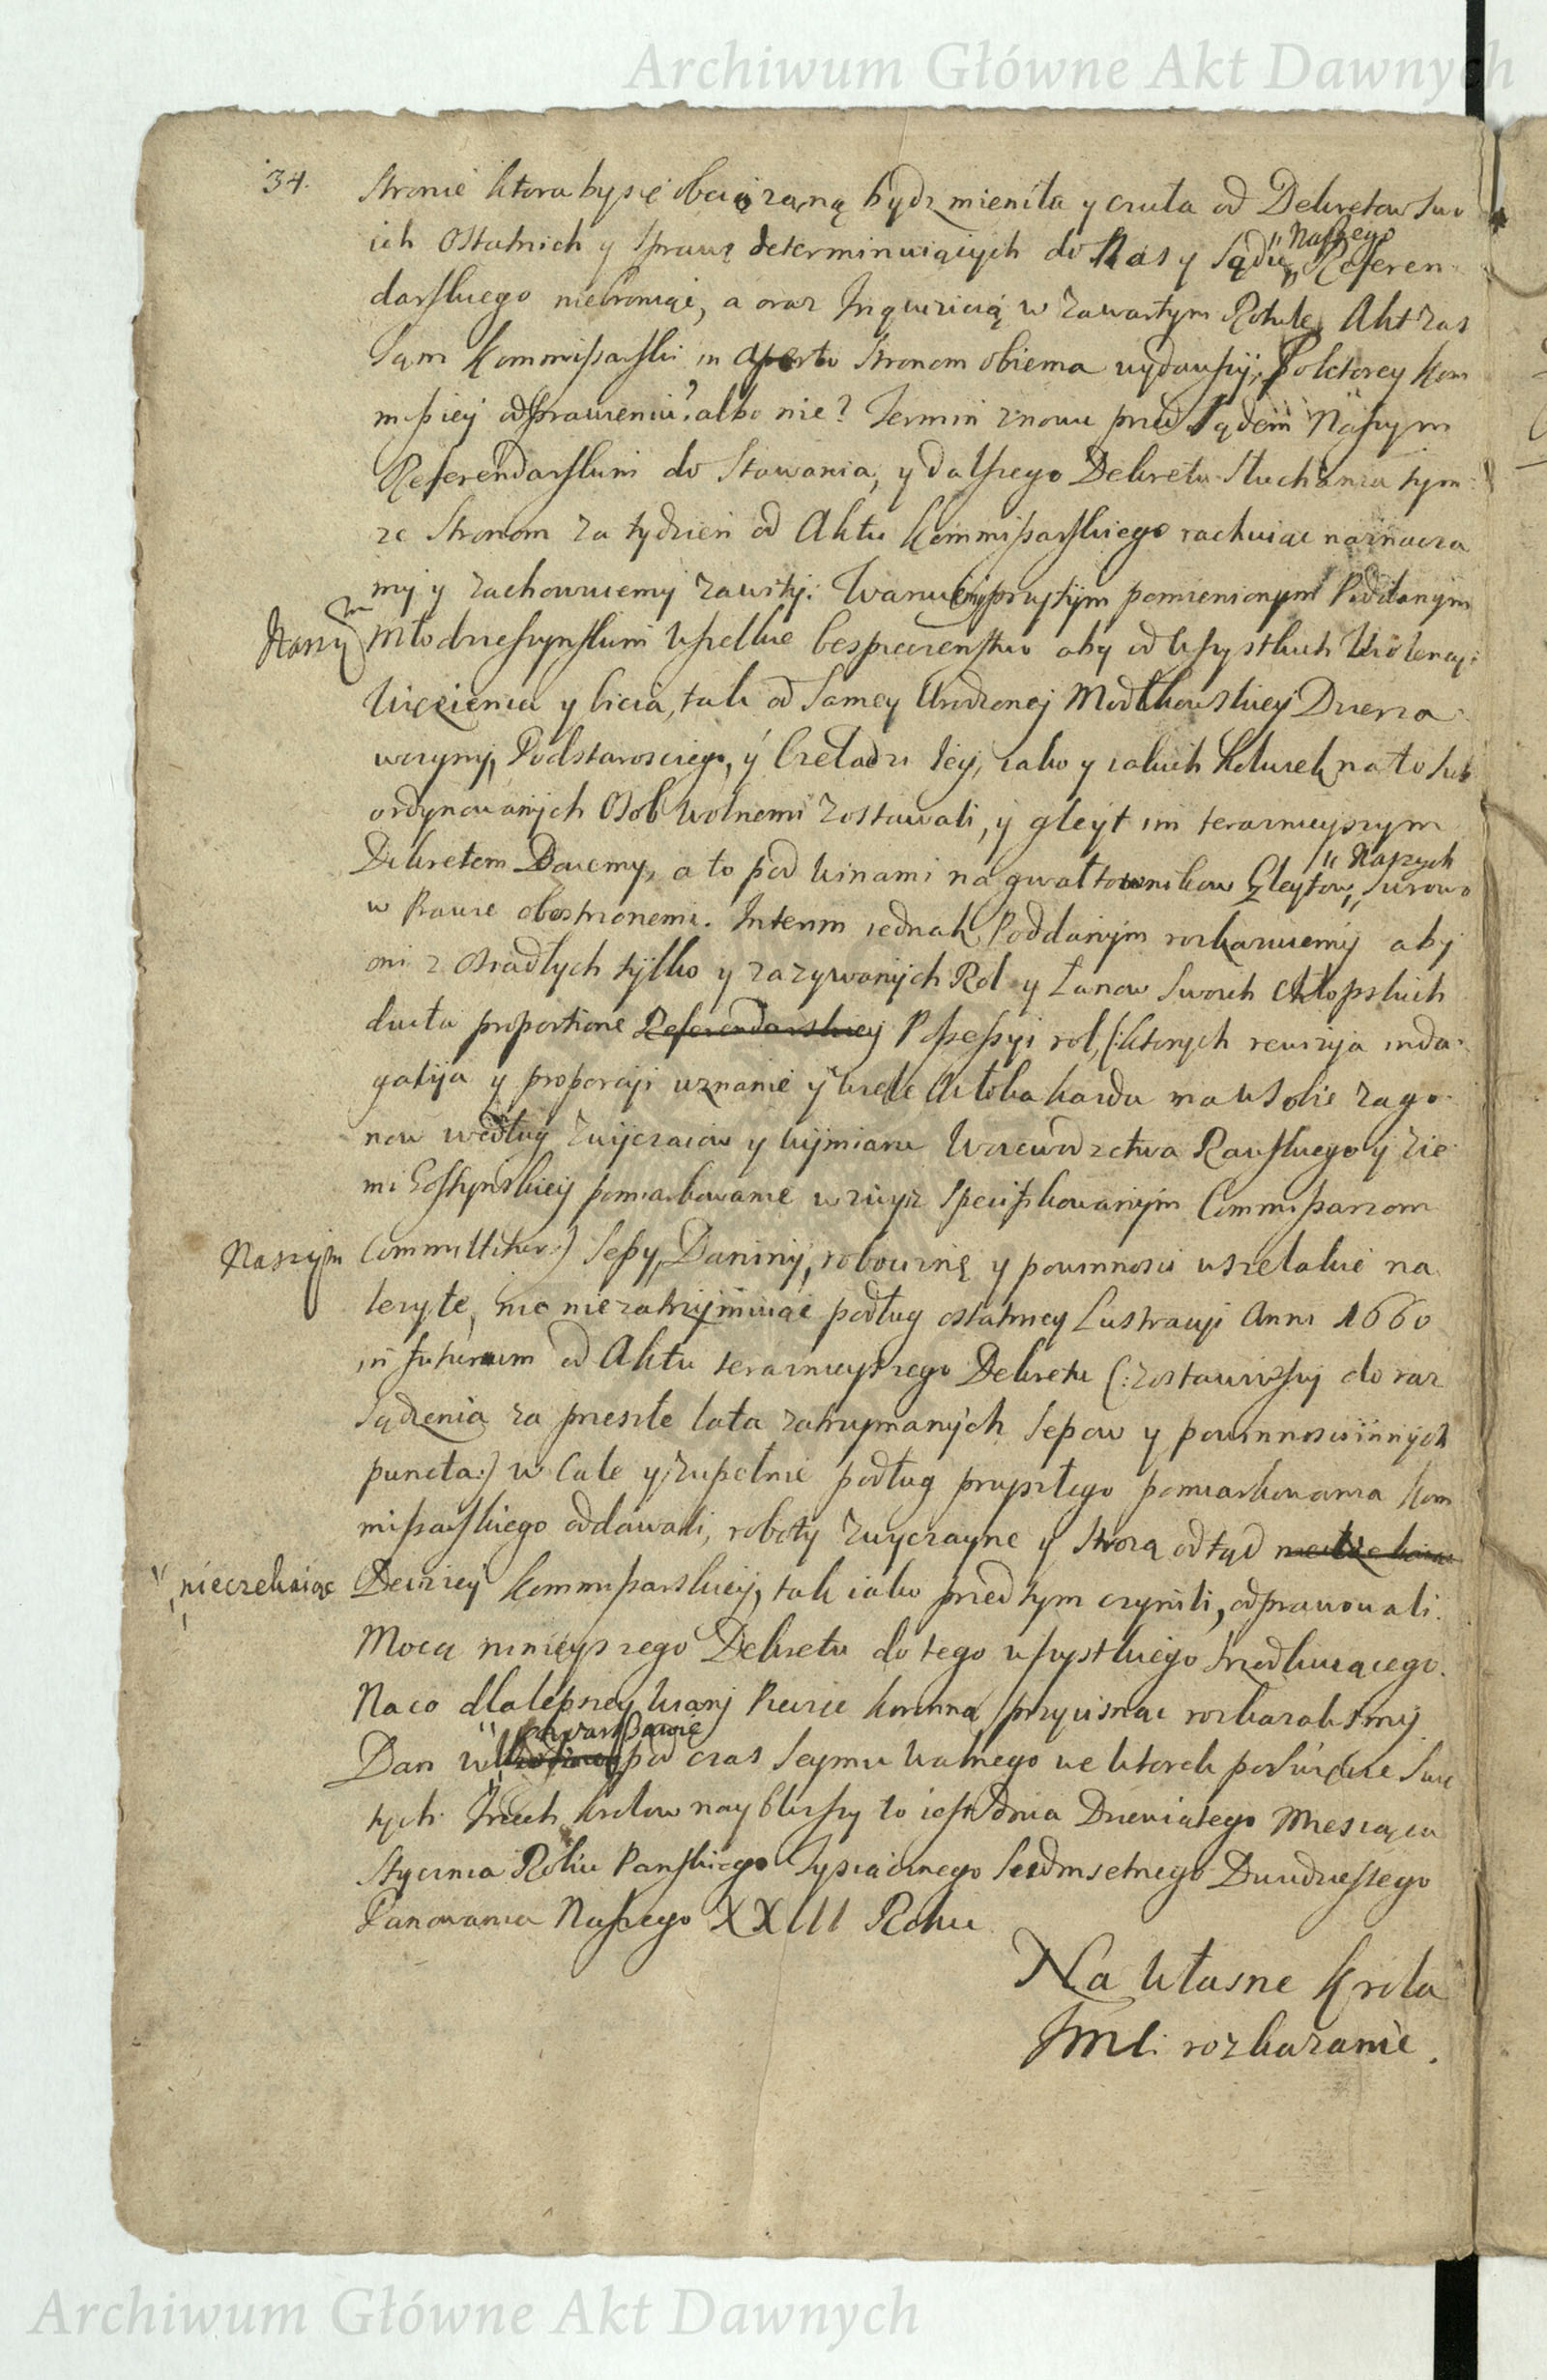 Archiwum Główne Akt Dawnych
34.
Stronie ktora by się obciązaną bydz mieniła y czuła od Dekretow Swo
ich Ostatnich y Sprawę determinuiących do Nas y Sądu Naszego Referen
darskiego niebroniąc, a oraz Inquizicią w zawartym Rotule, Akt zas
Sąm Kommissarski in aperto Stronom obiema wydawszy, Po ktorey Kom
missiey odprawieniu? albo nie? Termin znowu przed Sądem Naszym
Referendarskim do Stawania, y dalszego Dekretu Słuchania tym
ze Stronom za tydzień od Aktu Kommissarskiego rachuiąc naznacza
my y zachowuiemy zawity: Waruiemy przytym pomienionym Poddanym
Naszym Młodzieszynskim wszelkie bespieczenstwo aby od wszystkich Wiolencyi
Więzienia y bicia, tak od Samey Urodzonej Modlkowskiey Dzierza
wczyny, Podstarosciego, y Czeladzi Jey, iako y iakich kolwiek na to Sub
ordynowanych Osob wolnemi zostawali, y gleyt im teraznieyszym
Dekretem Daiemy, a to pod winami na gwałtownikow Gleytow Naszych Surowo
w Prawie obostrzonemi. Interim iednak Poddanym rozkazuiemy aby
oni z osiadłych tylko y zazywanych Rol y Łanow Swoich chłopskich
ducta proportione Possessyi rol, (:ktorych rewizya inda
gatya y proporcyi uznanie y wiele Włoka kazda ma w Sobie zago
now według zwyczaiow y wymiaru Woiewodztwa Rawskiego y Zie
mi Gostynskiey pomiarkowanie wzwyz specifikowanym Commissarzom
Naszym Committitur:) Sepy, Daniny, robociznę y powinnosci wszelakie na
lezyte, nic niezatrzymuiąc podług ostatniey Lustracyi Anni 1660
in futurum od Aktu teraznieyszego Dekretu (:zostawiwszy do roz
Sądzenia za przeszłe lata zatrzymanych Sepow y powinnosci innych
puncta:) w Cale y zupełnie podług przyszłego pomiarkowania Kom
missarskiego oddawali, roboty zwyczayne y Stroza odtąd
nieczekaiąc Deciziey Kommissarskiey, tak iako przed tym czynili, odprawowali.
Mocą ninieyszego Dekretu do tego wszystkiego Srzodkuiącego.
Na co dla lepszey wiary Pieczęc Koronną przycisnąc rozkazalismy
Dan w Warszawie pod czas Seymu Walnego we Wtorek po Swięcie Swię
tych Trzech Krolow nayblizszy to iest Dnia Dziewiątego Miesiąca
Stycznia Roku Panskiego Tysiącznego Siedmsetnego Dwudziestego
Panowania Naszego XXIII Roku
Na Własne Krola
Jmci rozkazanie.
Archiwum Główne Akt Dawnych